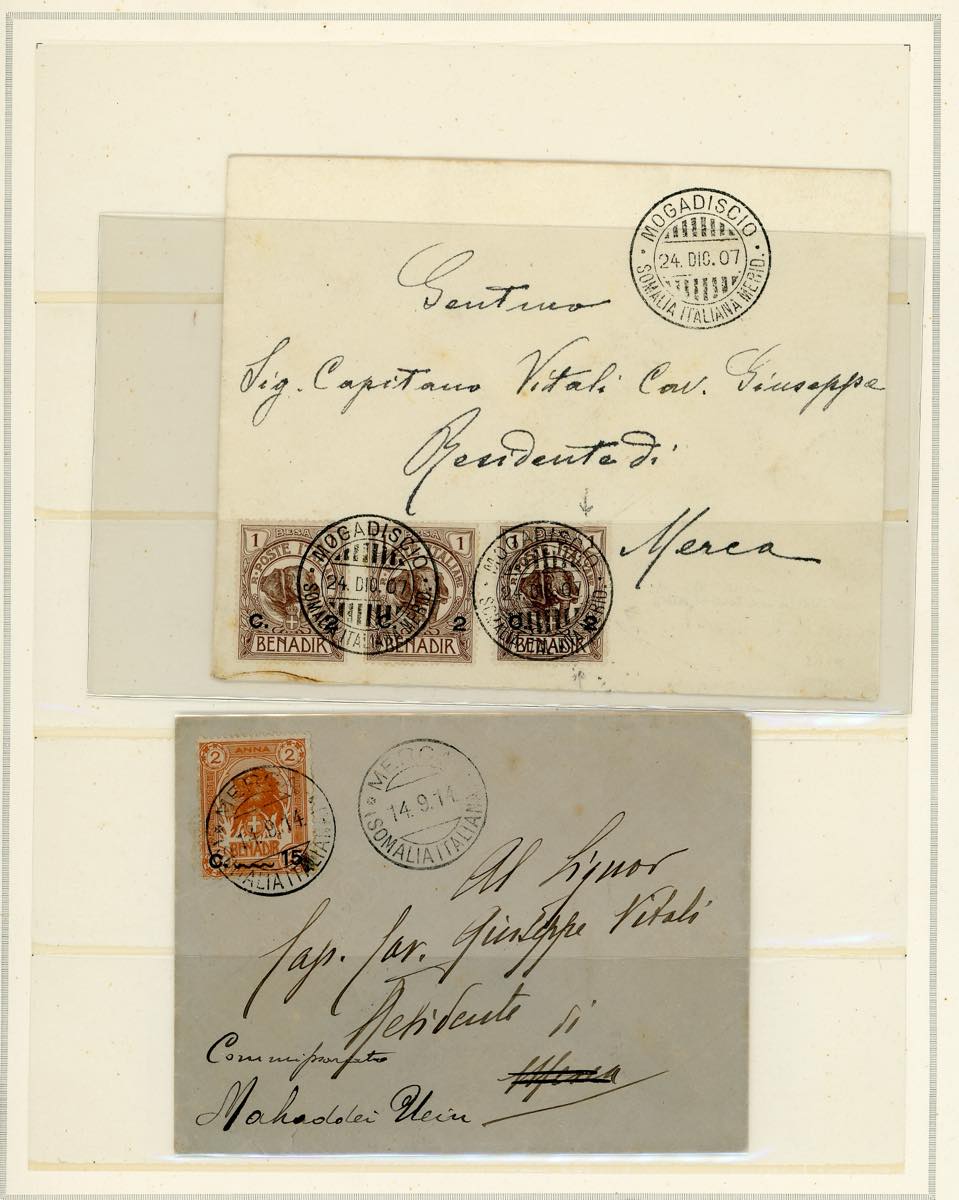 MOGADISCIO
24. DIC. 07
SOMALIA ITALIANA MERID.
Gentmo
Sig. Capitano Vitali Cav. Giuseppe
Residente di
Merca
1 BESA 1 1
POSTE ITALIANE
C. 2 C. 2 C. 2
BENADIR BENADIR BENADIR
MOGADISCIO
24. DIC. 07
SOMALIA ITALIANA MERID.
MOGADISCIO
24. DIC. 07
SOMALIA ITALIANA MERID.
2 ANNA 2
BENADIR
C. 15
MERCA
14.9.14
(SOMALIA ITALIANA)
MERCA
14.9.14
(SOMALIA ITALIANA)
Al Signor
Cap. Cav. Giuseppe Vitali
Residente di
Merca
Commissariato
Mahaddei Uein